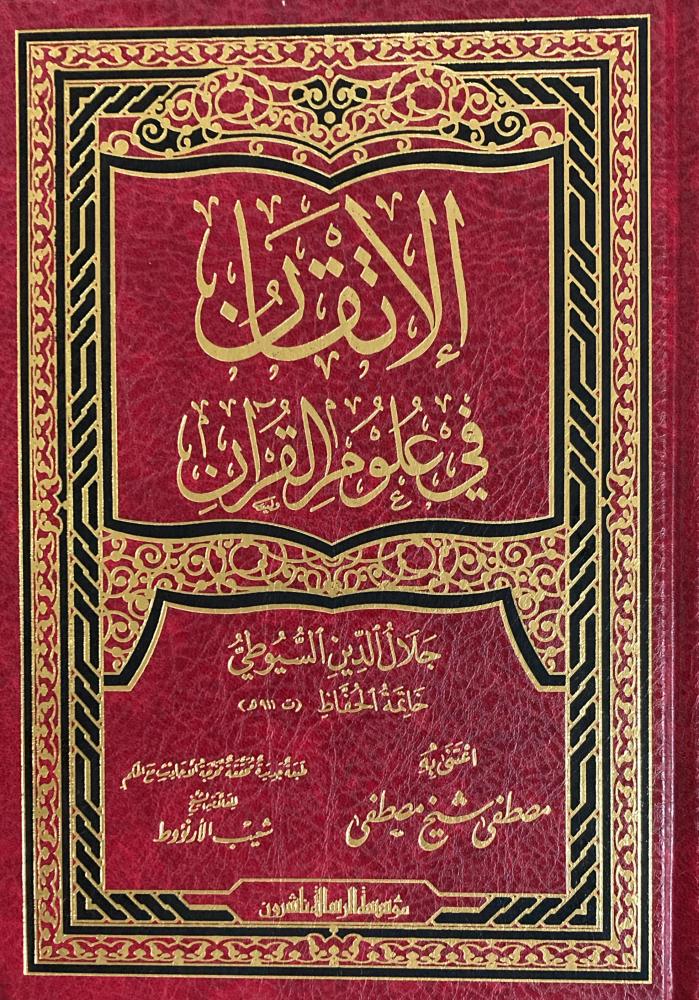 الإتقان
في علوم القرآن
جَلَالُ الدِّينِ السُّيُوطِيُّ
خَاتِمَةُ الْحُفَّاظِ (ت ٩١١ هـ)
اعْتَنَى بِهِ
مصطفى شيخ مصطفى
طبعة جديدة محققة مخرجة الأحاديث مع الحكم
للعلامة الشيخ
شعيب الأرنؤوط
مؤسسة الرسالة ناشرون